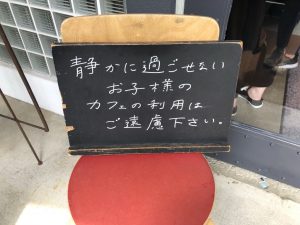 静かに過ごせない
お子様の
カフェの利用は
ご遠慮下さい。